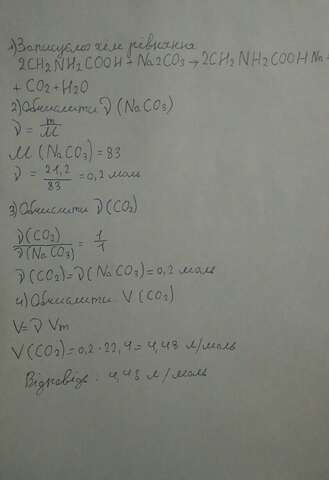 1) Записуємо хім рівняння
2CH2NH2COOH + Na2CO3 → 2CH2NH2COOHNa +
+ CO2 + H2O
2) Обчислити ν (NaCO3)
ν = m/M
M (NaCO3) = 83
ν = 21,2/83 = 0,2 моль
3) Обчислити ν(CO2)
ν(CO2)/ν(NaCO3) = 1/1
ν(CO2) = ν(NaCO3) = 0,2 моль
4) Обчислити V (CO2)
V = ν Vm
V(CO2) = 0,2 · 22,4 = 4,48 л/моль
Відповідь : 4,48 л/моль